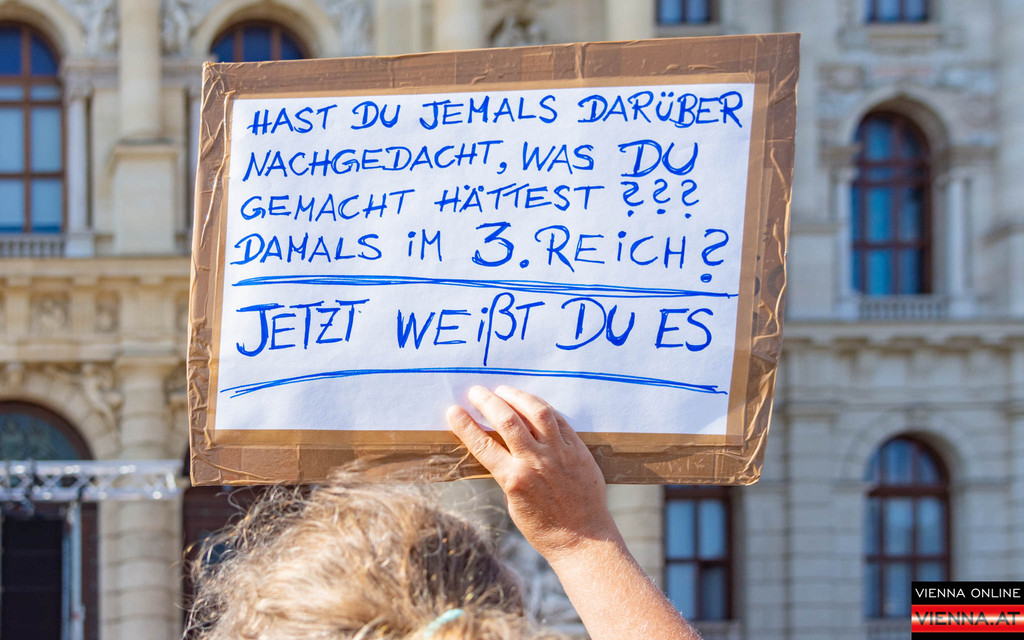 HAST DU JEMALS DARÜBER
NACHGEDACHT, WAS DU
GEMACHT HÄTTEST ???
DAMALS iM 3. REiCH?
JETZT WEißT DU ES
VIENNA ONLINE
VIENNA.AT